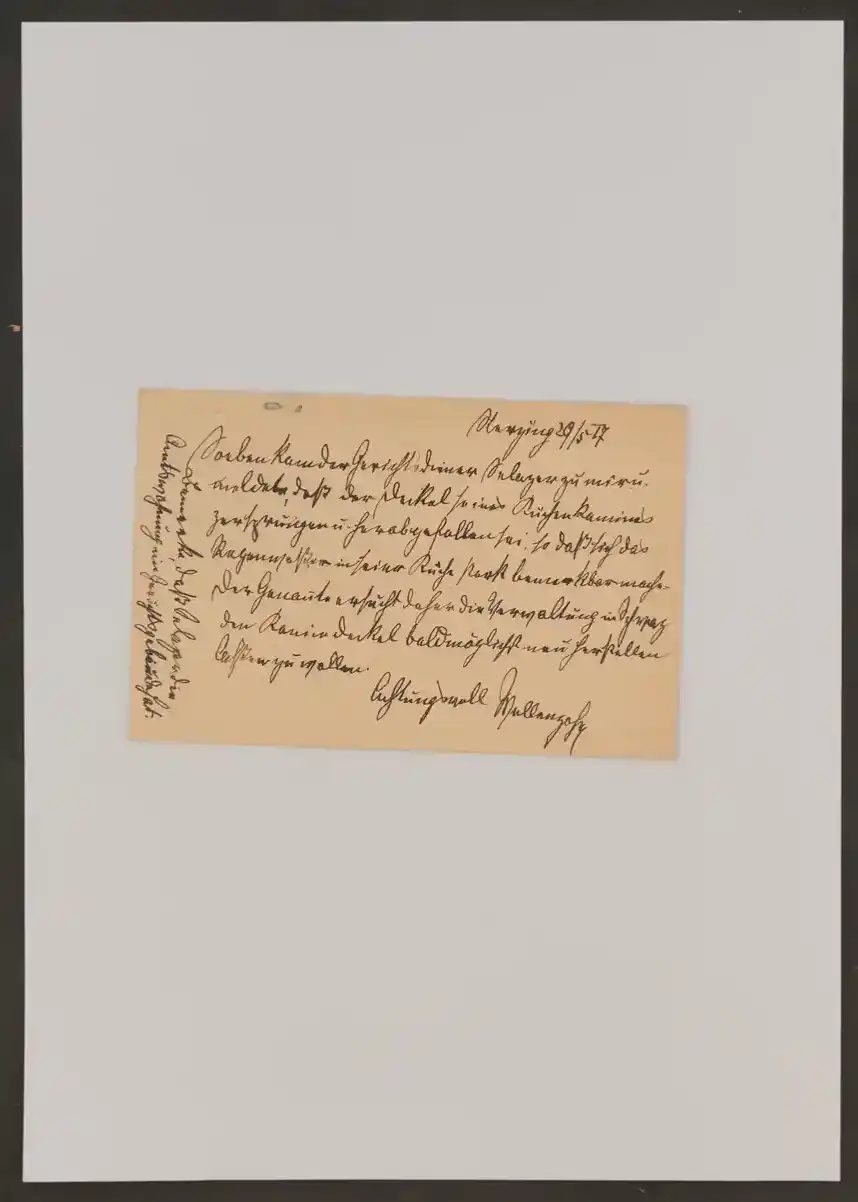 Sterzing 29/5 17
Soeben kam der Gerichtsdiener Selager zu mir u.
meldete, daß der Deckel seines Küchenkamines
zersprungen u. herabgefallen sei, so daß sich das
Regenwasser in seiner Küche stark bemerkbar mache.
Der Genannte ersucht daher die Verwaltung in Schwaz
den Kamindeckel baldmöglichst neu herstellen
lassen zu wollen.
Achtungsvoll Wellenzohn
Bemerke, daß Selager die
Amtswohnung im Gerichtsgebäude hat.